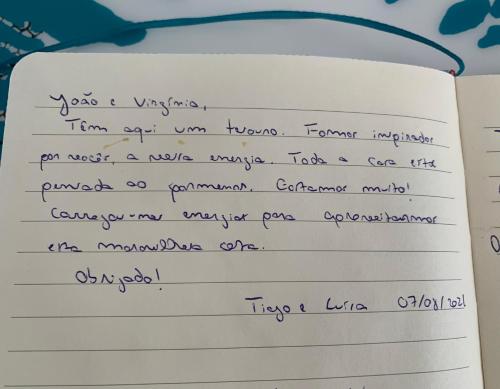 João e Virgínia,
Têm aqui um tesouro. Fomos inspirados
por vocês, a vossa energia. Toda a casa está
pensada ao pormenor. Gostamos muito!
Carregou-nos energias para aproveitarmos
esta maravilhosa costa.
Obrigado!
Tiago e Luísa 07/08/2021